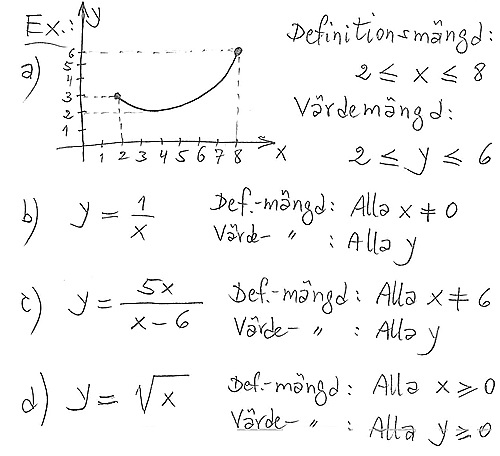 Ex.:
a)
y
6
5
4
3
2
1
1 2 3 4 5 6 7 8 x
Definitionsmängd:
2 ≤ x ≤ 8
Värdemängd:
2 ≤ y ≤ 6
b) y = 1/x Def.-mängd: Alla x ≠ 0
Värde- " : Alla y
c) y = 5x/(x - 6) Def.-mängd: Alla x ≠ 6
Värde- " : Alla y
d) y = √x Def.-mängd: Alla x ≥ 0
Värde- " : Alla y ≥ 0